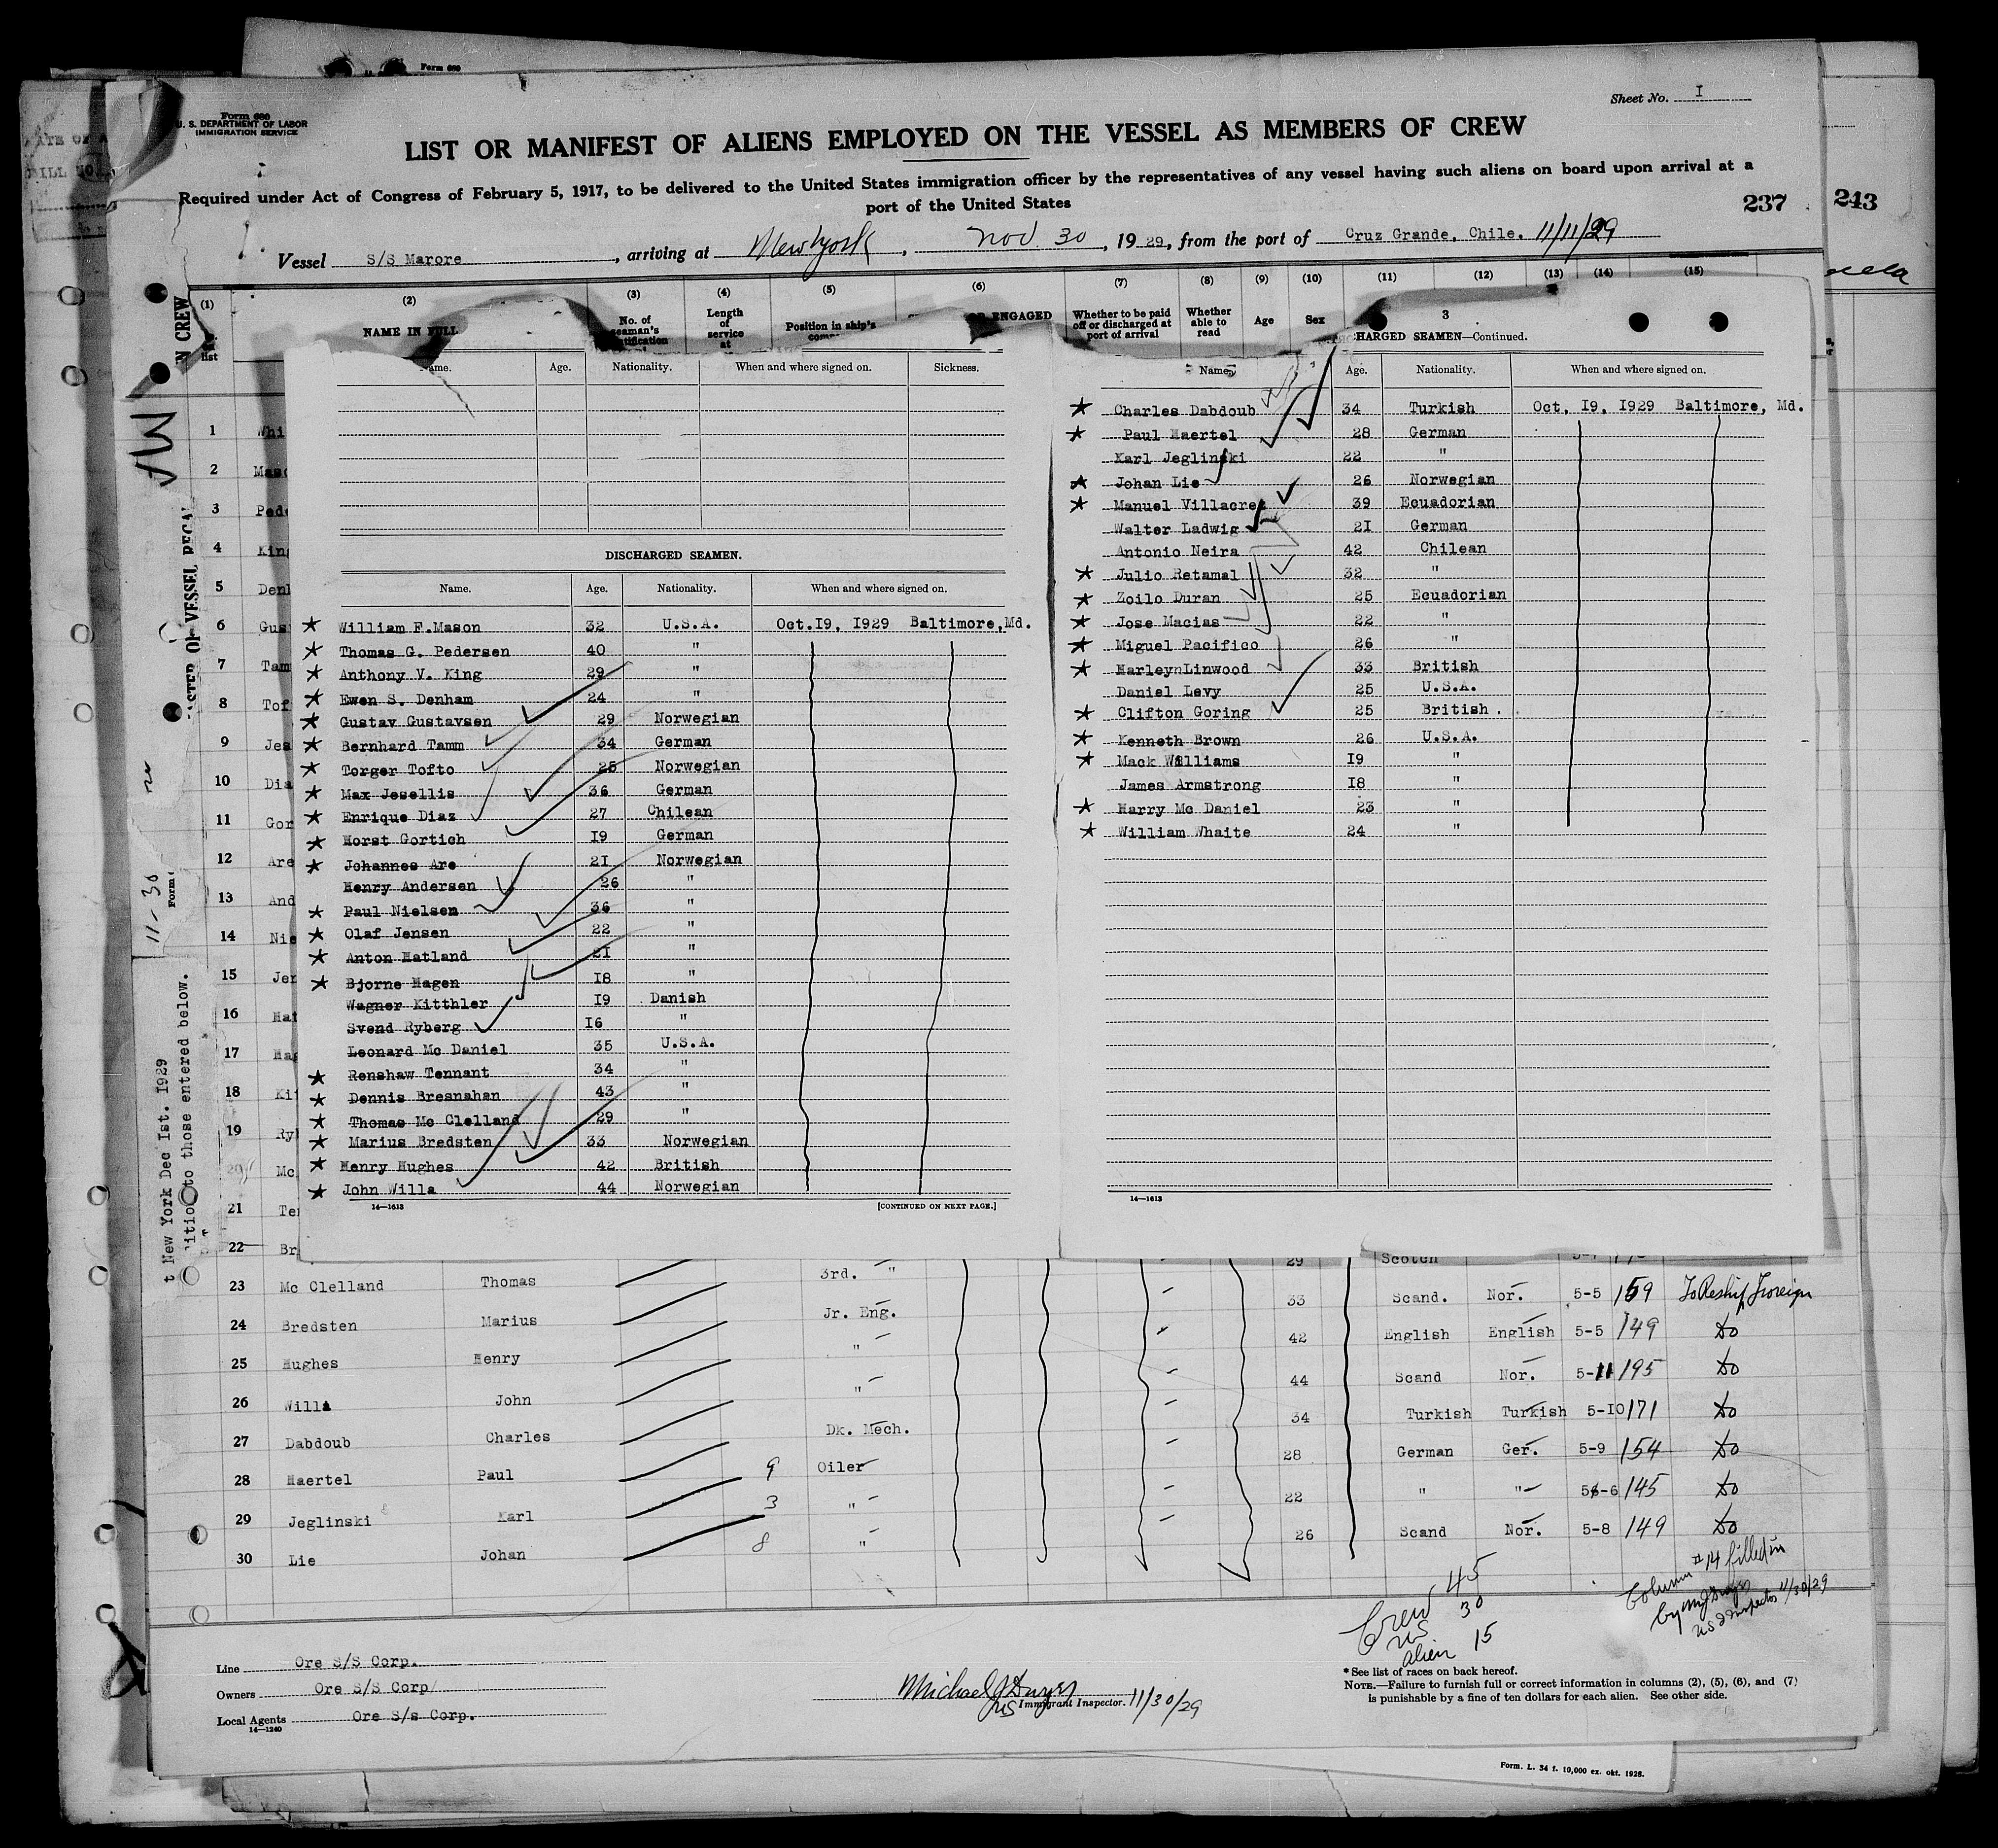 Form 680
Sheet No. I
Form 680
U. S. DEPARTMENT OF LABOR
IMMIGRATION SERVICE
LIST OR MANIFEST OF ALIENS EMPLOYED ON THE VESSEL AS MEMBERS OF CREW
Required under Act of Congress of February 5, 1917, to be delivered to the United States immigration officer by the representatives of any vessel having such aliens on board upon arrival at a
port of the United States
237 243
Vessel S/S Marore, arriving at New York, Nov. 30, 1929, from the port of Cruz Grande, Chile. 11/11/29
(1) (2) (3) (4) (5) (6) (7) (8) (9) (10) (11) (12) (13) (14) (15)
NAME IN FULL
No. of seaman's
Length of service at
Position in ship's
ENGAGED
Whether to be paid off or discharged at port of arrival
Whether able to read
Age
Sex
list
3
CHARGED SEAMEN—Continued.
Name. Age. Nationality. When and where signed on. Sickness.
DISCHARGED SEAMEN.
Name. Age. Nationality. When and where signed on.
William F.Mason 32 U.S.A. Oct.19, 1929 Baltimore,Md.
Thomas G. Pedersen 40 "
Anthony V. King 29 "
Ewen S. Denham 24 "
Gustav Gustavsen 29 Norwegian
Bernhard Tamm 34 German
Torger Tofto 25 Norwegian
Max Jesellis 36 German
Enrique Diaz 27 Chilean
Horst Gortich 19 German
Johannes Are 21 Norwegian
Henry Andersen 26 "
Paul Nielsen 36 "
Olaf Jensen 22 "
Anton Hatland 21 "
Bjorne Hagen 18 "
Wagner Kitthler 19 Danish
Svend Ryberg 16 "
Leonard Mc Daniel 35 U.S.A.
Renshaw Tennant 34 "
Dennis Bresnahan 43 "
Thomas Mc Clelland 29 "
Marius Bredsten 33 Norwegian
Henry Hughes 42 British
John Willa 44 Norwegian
14—1613 [CONTINUED ON NEXT PAGE.]
Name. Age. Nationality. When and where signed on.
Charles Dabdoub 34 Turkish Oct. 19, 1929 Baltimore, Md.
Paul Haertel 28 German
Karl Jeglinski 22 "
Johan Lie 26 Norwegian
Manuel Villacres 39 Ecuadorian
Walter Ladwig 21 German
Antonio Neira 42 Chilean
Julio Retamal 32 "
Zoilo Duran 25 Ecuadorian
Jose Macias 22 "
Miguel Pacifico 26 "
HarleynLinwood 33 British
Daniel Levy 25 U.S.A.
Clifton Goring 25 British.
Kenneth Brown 26 U.S.A.
Mack Williams 19 "
James Armstrong 18 "
Harry Mc Daniel 23 "
William Whaite 24 "
14—1613
1 Whi
2 Maso
3 Pede
4 King
5 Denh
6 Gus
7 Tam
8 Tof
9 Jes
10 Dia
11 Gor
12 Are
13 And
14 Nie
15 Jen
16 Hat
17 Hag
18 Kit
19 Ryb
20 Mc
21 Ten
22 Br 29 Scotch
23 Mc Clelland Thomas 3rd. " 33 Scand. Nor. 5-5 159 To Reship Foreign
24 Bredsten Marius Jr. Eng. 42 English English 5-5 149 do
25 Hughes Henry " 44 Scand Nor. 5-11 195 do
26 Willa John " 34 Turkish Turkish 5-10 171 do
27 Dabdoub Charles Dk. Mech. 28 German Ger. 5-9 154 do
28 Haertel Paul 9 Oiler 22 " " 5-6 145 do
29 Jeglinski Karl 3 " 26 Scand Nor. 5-8 149 do
30 Lie Johan 8 "
t New York Dec 1st. 1929
ition to those entered below.
11-30
Crew 45
US 30
alien 15
Column #14 filled in
by
US Inspector 11/30/29
Line Ore S/S Corp.
Owners Ore S/S Corp
Local Agents Ore S/s Corp.
14—1240
Michael J Dwyer
US Immigrant Inspector. 11/30/29
* See list of races on back hereof.
NOTE.—Failure to furnish full or correct information in columns (2), (5), (6), and (7)
is punishable by a fine of ten dollars for each alien. See other side.
Form. L. 34 f. 10,000 ex. okt. 1928.